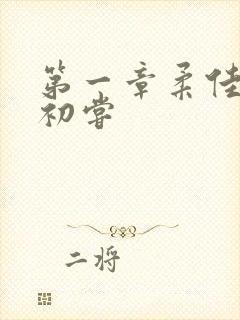 第一章柔佳
初尝
二将